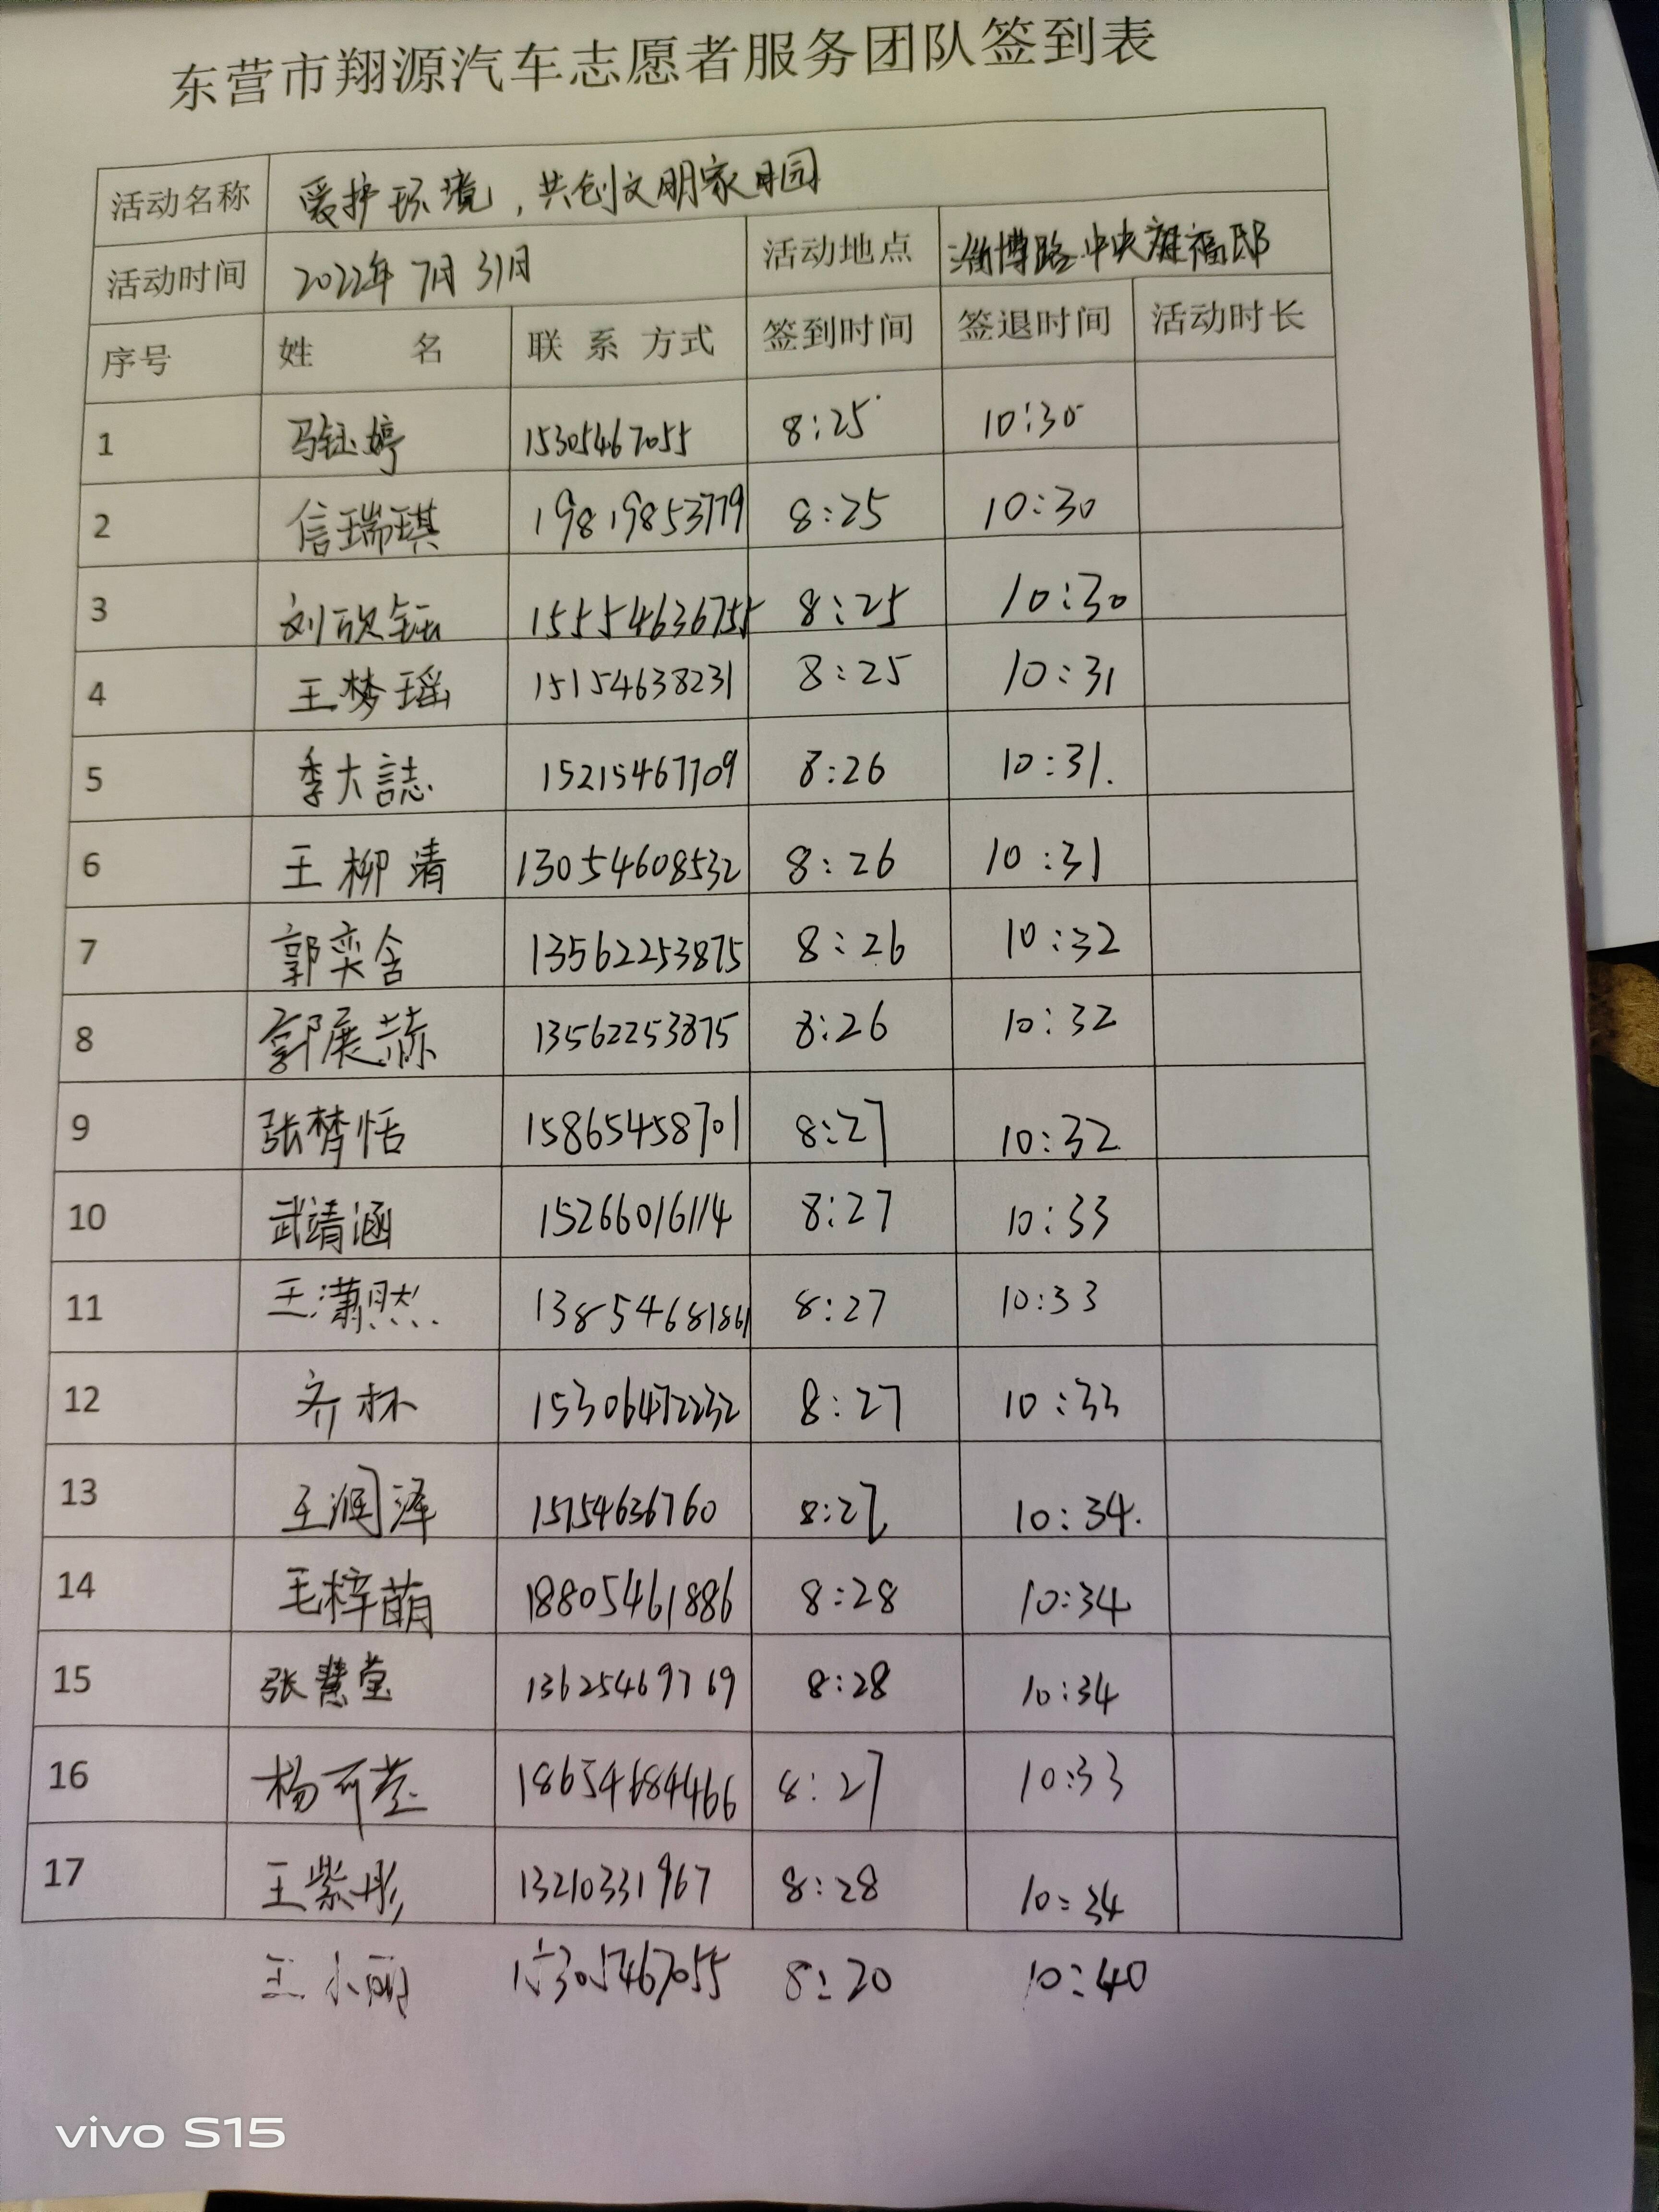 东营市翔源汽车志愿者服务团队签到表
活动名称 爱护环境,共创文明家园
活动时间 2022年7月31日 活动地点 淄博路中央福邸
序号 姓名 联系方式 签到时间 签退时间 活动时长
1 马钰婷 15305467055 8:25 10:30
2 信瑞琪 19819853779 8:25 10:30
3 刘欣钰 15554636755 8:25 10:30
4 王梦瑶 15154638231 8:25 10:31
5 季大誌 15215467709 8:26 10:31.
6 王柳清 13054608532 8:26 10:31
7 郭奕含 13562253875 8:26 10:32
8 郭展赫 13562253875 8:26 10:32
9 张梦恬 15865458701 8:27 10:32
10 武靖涵 15266016114 8:27 10:33
11 王潇然 13854681861 8:27 10:33
12 齐林 15306472232 8:27 10:33
13 王润泽 15154636760 8:27 10:34.
14 毛梓萌 18805461886 8:28 10:34
15 张慧莹 13625469769 8:28 10:34
16 杨可莹 18654684466 8:27 10:33
17 王紫彤 13210331967 8:28 10:34
王小丽 15305467055 8:20 10:40
vivo S15